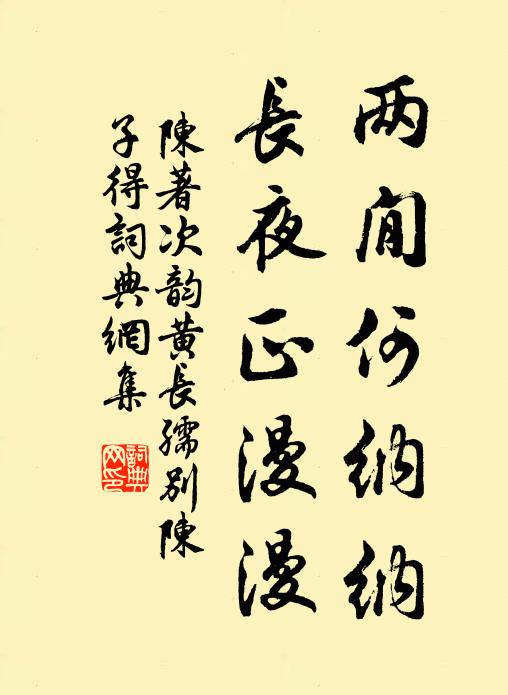 两間何納納
長夜正漫漫
陳著次韵黄長孺别陳
子得詞典網集
詞典
网印